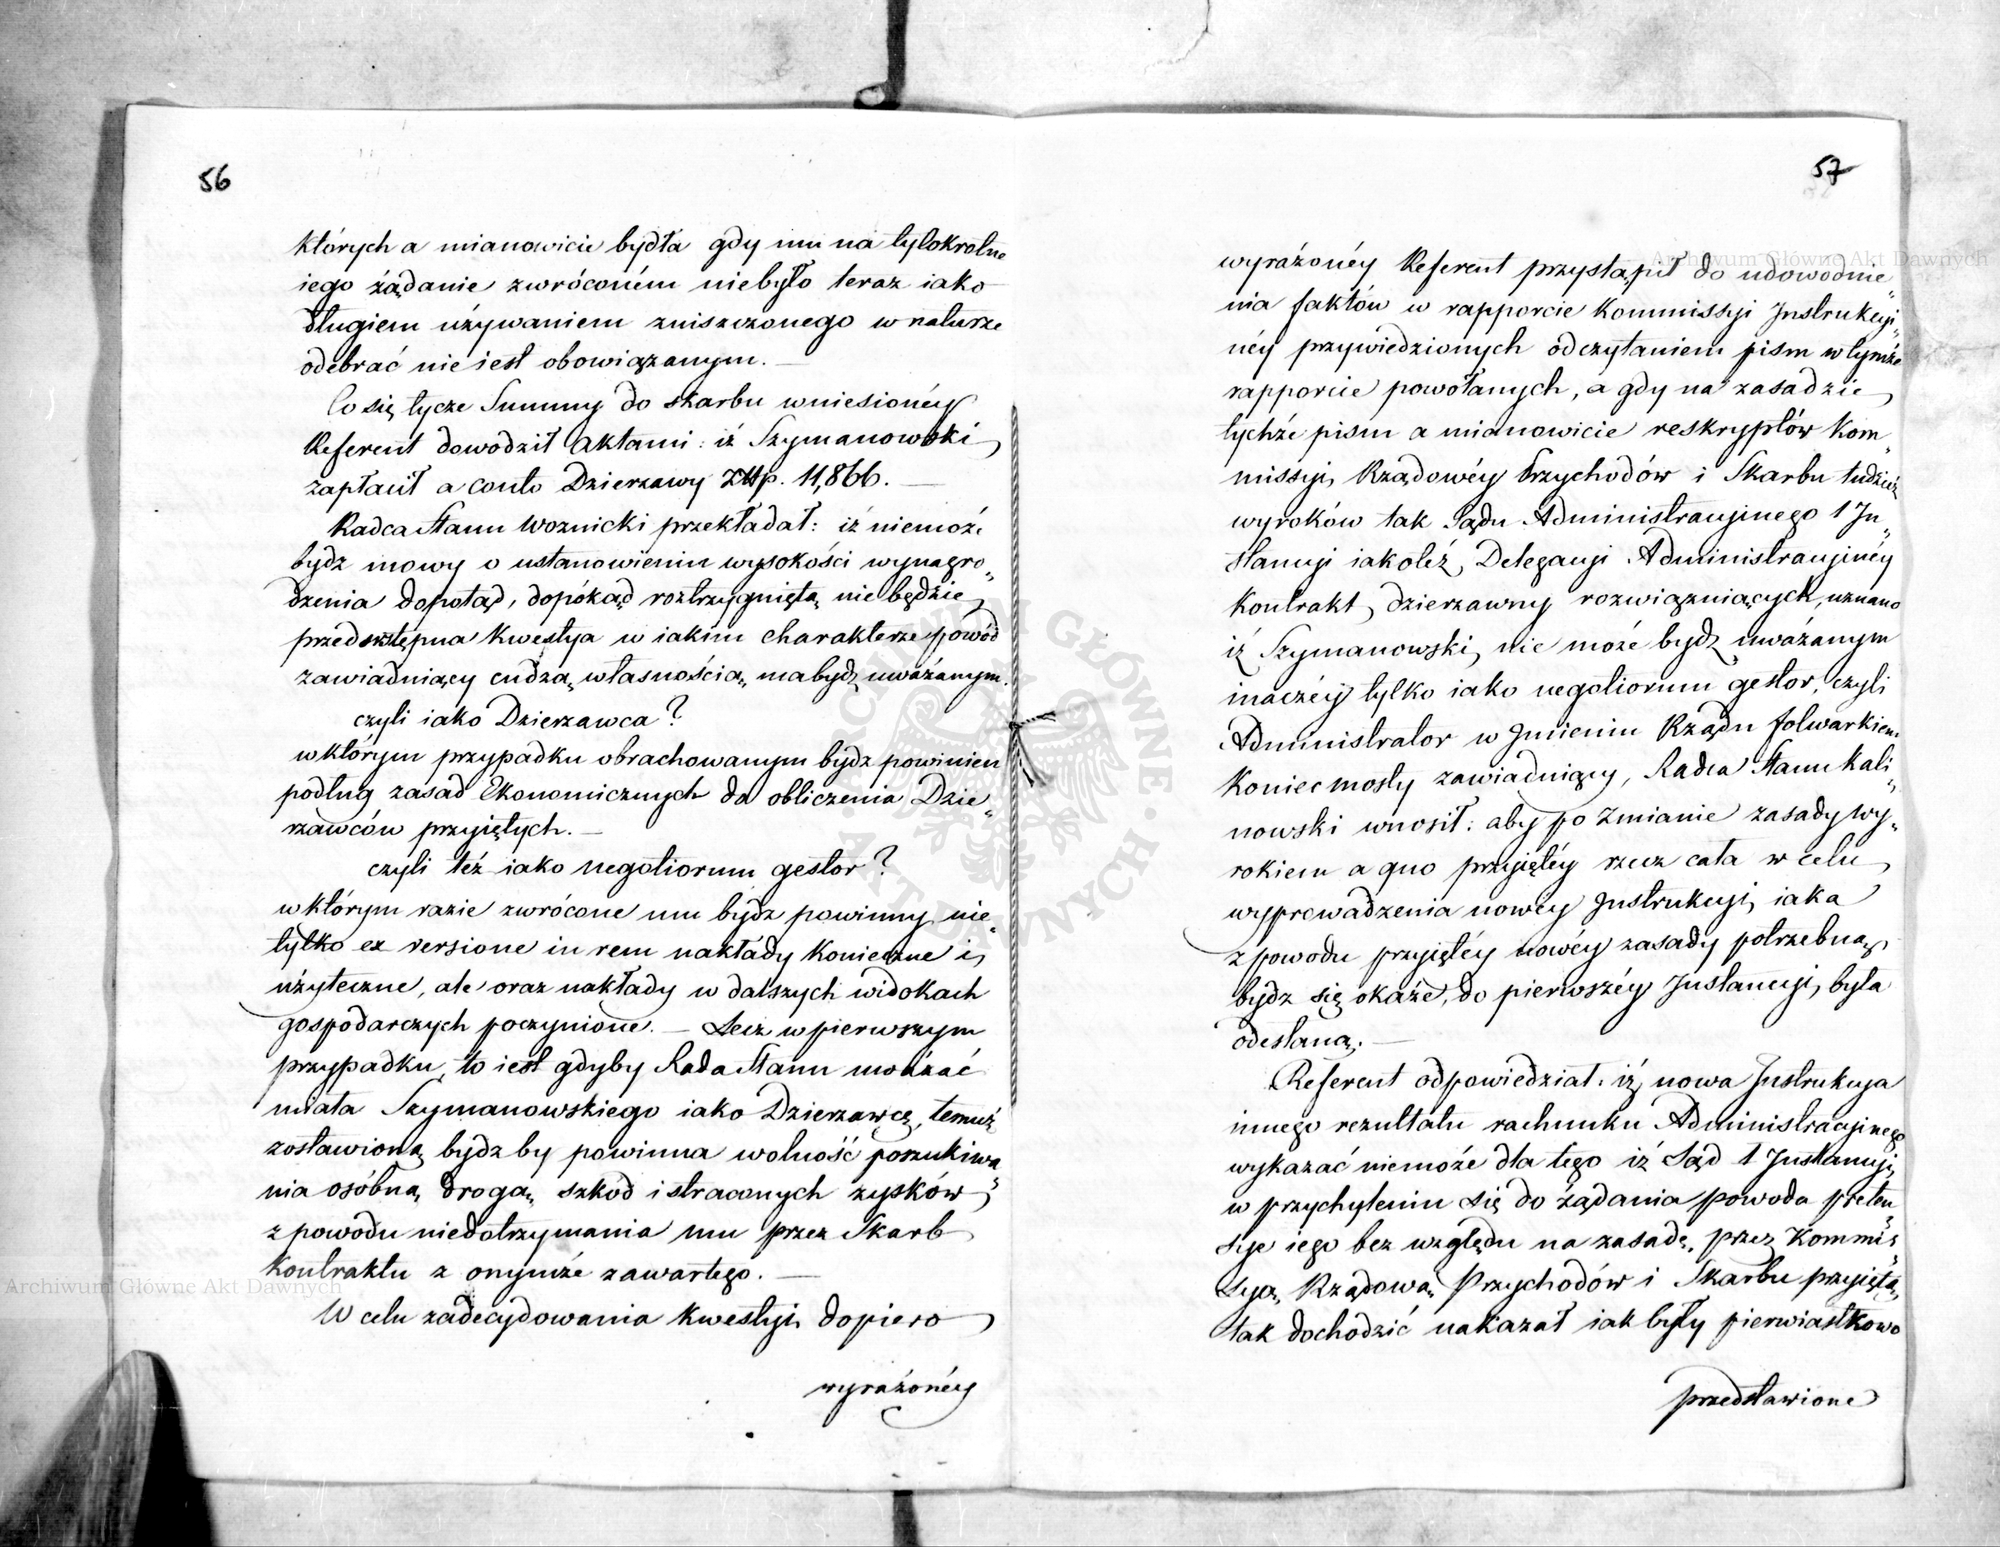 56
których a mianowicie bydła gdy mu na tylokrotne
iego żądanie zwróconém niebyło teraz iako
długiem używaniem zniszczonego w naturze
odebrać nie iest obowiązanym. —
Co się tycze Summy do skarbu wniesionéy
Referent dowodził Aktami: iż Szymanowski
zapłacił a conto Dzierzawy Złłp. 11,866. —
Radca Stanu Woznicki przekładał: iż niemoże
bydz mowy o ustanowieniu wysokości wynagro„
dzenia dopotąd, dopókąd roztrzygniętą nie będzie
przedwstępna kwestya w iakim charakterze powód
zawiaduiący cudzą własnością, ma bydz uważanym.
czyli iako Dzierzawca?
w którym przypadku obrachowanym bydz powinien
podług zasad Ekonomicznych do obliczenia Dzie„
rzawców przyiętych. —
czyli też iako negotiorum gestor?
w którym razie zwrócone mu bydz powinny nie„
tylko ex versione in rem nakłady konieczne i
użyteczne, ale oraz nakłady w dalszych widokach
gospodarczych poczynione. — Lecz w pierwszym
przypadku, to iest gdyby Rada Stanu uważać
miała Szymanowskiego iako Dzierzawcę, temuż
zostawioną bydz by powinna wolność poszukiwa„
nia osóbną drogą, szkod i straconych zysków
z powodu niedotrzymania mu przez Skarb
kontraktu z onymże zawartego. —
W celu zadecydowania kwestyi dopiero
wyrażonéy
57
wyrażonéy Referent przystąpił do udowodnie„
nia faktów w rapporcie Kommissyi Instrukcyi„
néy przywiedzionych odczytaniem pism w tymże
rapporcie powołanych, a gdy na zasadzie
tychże pism a mianowicie reskryptów Kom„
missyi Rządowéy Przychodów i Skarbu tudzież
wyroków tak Sądu Administracyinego 1 In„
stancyi iakoleż, Delegacyi Administracyinéy
kontrakt dzierzawny rozwiązuiących, uznano
iż Szymanowski, nie może bydz uważanym
inaczéy tylko iako negotiorum gestor, czyli
Administrator w Imieniu Rządu folwarkiem
Koniecmosty zawiaduiący, Radca Stanu Kali„
nowski wnosił: aby po zmianie zasady wy„
rokiem a quo przyiętéy rzecz cała w celu
wyprowadzenia nowéy Instrukcyi, iaka
z powodu przyiętéy nowéy zasady potrzebną,
bydz się okaże, do pierwszéy Instancyi, była
odesłaną. —
Referent odpowiedział: iż, nowa Instrukcya
innego rezultatu rachunku Administracyinego
wykazać niemoże dla tego iż Sąd 1 Instancyi,
w przychyleniu się do żądania powoda preten„
sye iego bez względu na zasadę, przez Kommis„
syą, Rządową Przychodów i Skarbu przyiętą,
tak dochodzić nakazał iak były pierwiastkowo
przedstawione
Archiwum Główne Akt Dawnych
Archiwum Główne Akt Dawnych
ARCHIWUM GŁÓWNE AKT DAWNYCH